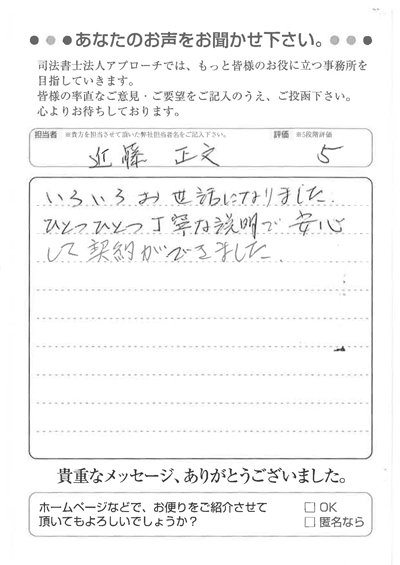 ●●●あなたのお声をお聞かせ下さい。●●●
司法書士法人アプローチでは、もっと皆様のお役に立つ事務所を
目指していきます。
皆様の率直なご意見・ご要望をご記入のうえ、ご投函下さい。
心よりお待ちしております。
担当者 ※貴方を担当させて頂いた弊社担当者名をご記入下さい。 評価 ※5段階評価
近藤 正文 5
いろいろお世話になりました.
ひとつひとつ丁寧な説明で安心
して契約ができました.
貴重なメッセージ、ありがとうございました。
ホームページなどで、お便りをご紹介させて
頂いてもよろしいでしょうか?
□ OK
□ 匿名なら